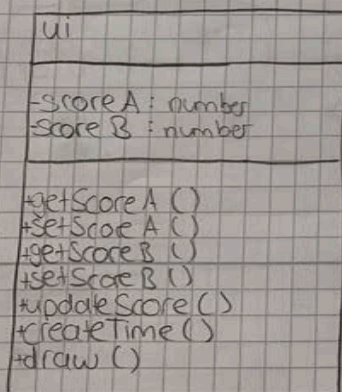 ui
-scoreA : number
-score B : number
+getScoreA ()
+setScoreA ()
+getScoreB ()
+setScoreB ()
+updateScore ()
+createTime ()
+draw ()